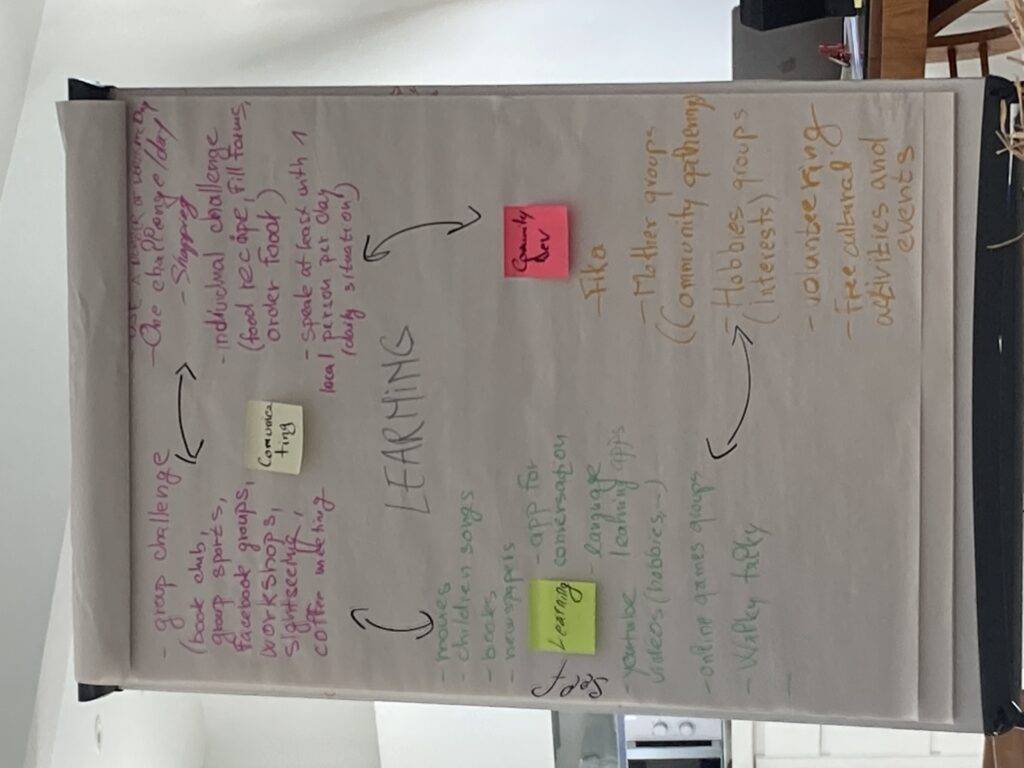 - One challenge/day
- Shopping
- group challenge
(book club,
group sports,
Facebook groups,
workshops,
sightseeing,
coffee meeting
- individual challenge
(food recipe, fill forms,
order food)
- speak at least with 1
local person per day
(daily situation!)
Comunica
ting
LEARNING
- movies
- children songs
- books
- newspapers
- app for
conversation
- language
learning apps
Learning
Self
- youtube
videos (hobbies,...)
- online games groups
- Walky talky
Comunity
dev
- Fika
- Mother groups
(Community gathering
- Hobbies groups
(interests)
- volunteering
- Free cultural
activities and
events